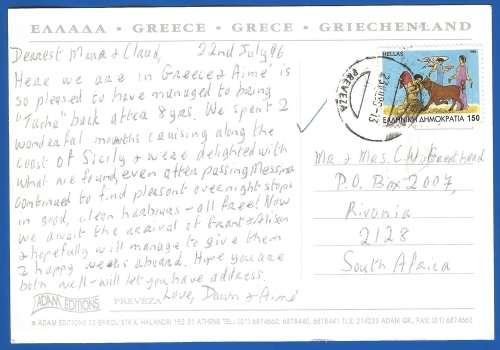 ΕΛΛΑΔΑ · GREECE · GRECE · GRIECHENLAND
Dearest Mona & Claud, 22nd July 96
Here we are in Greece & Aimé is
so pleased to have managed to bring
back after 8 yrs. We spent 2
wonderful months cruising along the
coast of Sicily & were delighted with
what we found, even after passing Messina
continued to find pleasant overnight stops
in good, clean harbours – all free! Now
we await the arrival of Grant & Alison
& hopefully will manage to give them
2 happy weeks aboard. Hope you are
both well – will let you have address.
Love, Dawn & Aimé
HELLAS
ΕΛΛΗΝΙΚΗ ΔΗΜΟΚΡΑΤΙΑ 150
PREVEZA
Mr. & Mrs. C.W.
P.O. Box 2007,
Rivonia
2128
South Africa
ADAM EDITIONS
PREVEZA
ADAM EDITIONS
HALANDRI 152 31 ATHENS TEL: (01) 6874662, 6878440, 6878441 TLX: 214223 ADAM GR., FAX: (01) 6874662